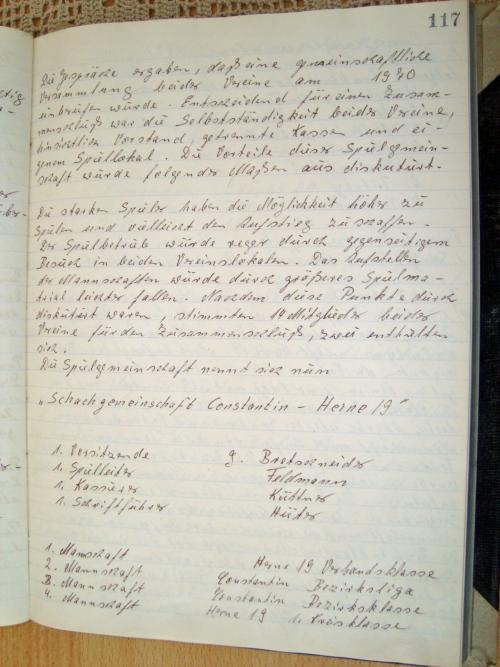 117
Die Gespräche ergaben, daß eine gemeinschaftliche
Versammlung beider Vereine am 1970
einberufen würde. Entscheidend für einen Zusam-
menschluß war die Selbstständigkeit beider Vereine,
hinsichtlich Vorstand, getrennte Kassen und ei-
genem Spiellokal. Die Vorteile dieser Spielgemein-
schaft würde folgender Maßen aus diskutiert.
Die starken Spieler haben die Möglichkeit höher zu
Spielen und vielleicht den Aufstieg zu schaffen.
Der Spielbetrieb würde reger durch gegenseitigem
Besuch in beiden Vereinslokalen. Das Aufstellen
der Mannschaften würde durch größeres Spielma-
trial leichter fallen. Nachdem diese Punkte durch
diskutiert waren, stimmten 19 Mitglieder beider
Vereine für den Zusammenschluß, zwei enthielten
sich.
Die Spielgemeinschaft nennt sich nun
„Schachgemeinschaft Constantin – Herne 19"
1. Vorsitzende G. Bretschneider
1. Spielleiter Feldmann
1. Kassierer Küttner
1. Schriftführer Hüter
1. Mannschaft Herne 19 Verbandsklasse
2. Mannschaft Constantin Bezirksliga
3. Mannschaft Constantin Bezirksklasse
4. Mannschaft Herne 19 1. Kreisklasse